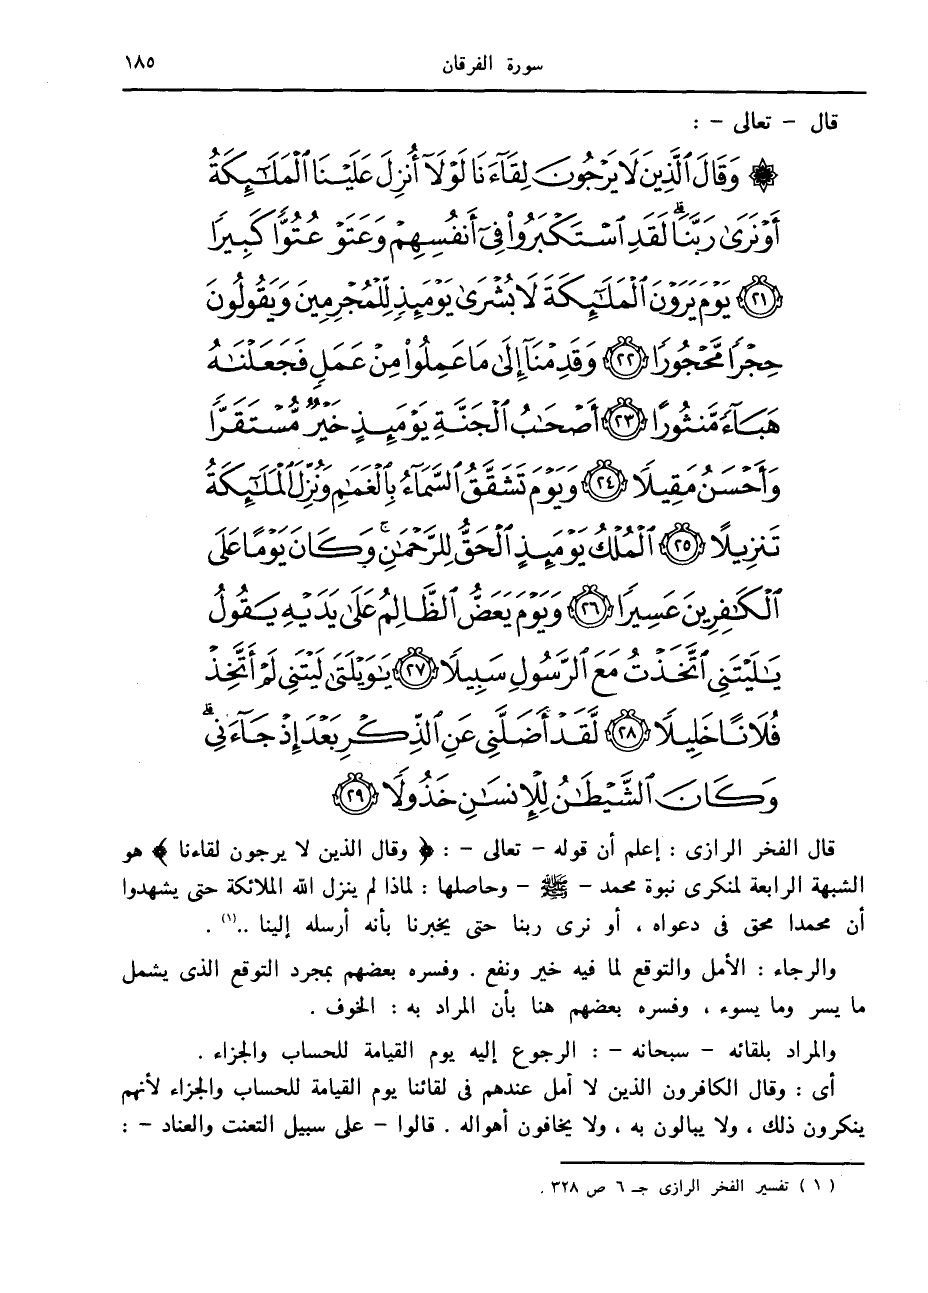 سورة الفرقان ١٨٥
قال – تعالى – :
۞ وَقَالَ ٱلَّذِينَ لَا يَرْجُونَ لِقَآءَنَا لَوْلَآ أُنزِلَ عَلَيْنَا ٱلْمَلَٰٓئِكَةُ
أَوْ نَرَىٰ رَبَّنَا ۗ لَقَدِ ٱسْتَكْبَرُوا۟ فِىٓ أَنفُسِهِمْ وَعَتَوْ عُتُوًّا كَبِيرًا
﴿٢١﴾ يَوْمَ يَرَوْنَ ٱلْمَلَٰٓئِكَةَ لَا بُشْرَىٰ يَوْمَئِذٍ لِّلْمُجْرِمِينَ وَيَقُولُونَ
حِجْرًا مَّحْجُورًا ﴿٢٢﴾ وَقَدِمْنَآ إِلَىٰ مَا عَمِلُوا۟ مِنْ عَمَلٍ فَجَعَلْنَٰهُ
هَبَآءً مَّنثُورًا ﴿٢٣﴾ أَصْحَٰبُ ٱلْجَنَّةِ يَوْمَئِذٍ خَيْرٌ مُّسْتَقَرًّا
وَأَحْسَنُ مَقِيلًا ﴿٢٤﴾ وَيَوْمَ تَشَقَّقُ ٱلسَّمَآءُ بِٱلْغَمَٰمِ وَنُزِّلَ ٱلْمَلَٰٓئِكَةُ
تَنزِيلًا ﴿٢٥﴾ ٱلْمُلْكُ يَوْمَئِذٍ ٱلْحَقُّ لِلرَّحْمَٰنِ ۚ وَكَانَ يَوْمًا عَلَى
ٱلْكَٰفِرِينَ عَسِيرًا ﴿٢٦﴾ وَيَوْمَ يَعَضُّ ٱلظَّالِمُ عَلَىٰ يَدَيْهِ يَقُولُ
يَٰلَيْتَنِى ٱتَّخَذْتُ مَعَ ٱلرَّسُولِ سَبِيلًا ﴿٢٧﴾ يَٰوَيْلَتَىٰ لَيْتَنِى لَمْ أَتَّخِذْ
فُلَانًا خَلِيلًا ﴿٢٨﴾ لَّقَدْ أَضَلَّنِى عَنِ ٱلذِّكْرِ بَعْدَ إِذْ جَآءَنِى ۗ
وَكَانَ ٱلشَّيْطَٰنُ لِلْإِنسَٰنِ خَذُولًا ﴿٢٩﴾
قال الفخر الرازى : إعلم أن قوله – تعالى – : ﴿ وقال الذين لا يرجون لقاءنا ﴾ هو
الشبهة الرابعة لمنكرى نبوة محمد – ﷺ – وحاصلها : لماذا لم ينزل الله الملائكة حتى يشهدوا
أن محمدا محق فى دعواه ، أو نرى ربنا حتى يخبرنا بأنه أرسله إلينا ..(١) .
والرجاء : الأمل والتوقع لما فيه خير ونفع . وفسره بعضهم بمجرد التوقع الذى يشمل
ما يسر وما يسوء ، وفسره بعضهم هنا بأن المراد به : الخوف .
والمراد بلقائه – سبحانه – : الرجوع إليه يوم القيامة للحساب والجزاء .
أى : وقال الكافرون الذين لا أمل عندهم فى لقائنا يوم القيامة للحساب والجزاء لأنهم
ينكرون ذلك ، ولا يبالون به ، ولا يخافون أهواله . قالوا – على سبيل التعنت والعناد – :
( ١ ) تفسير الفخر الرازى جـ ٦ ص ٣٢٨ .